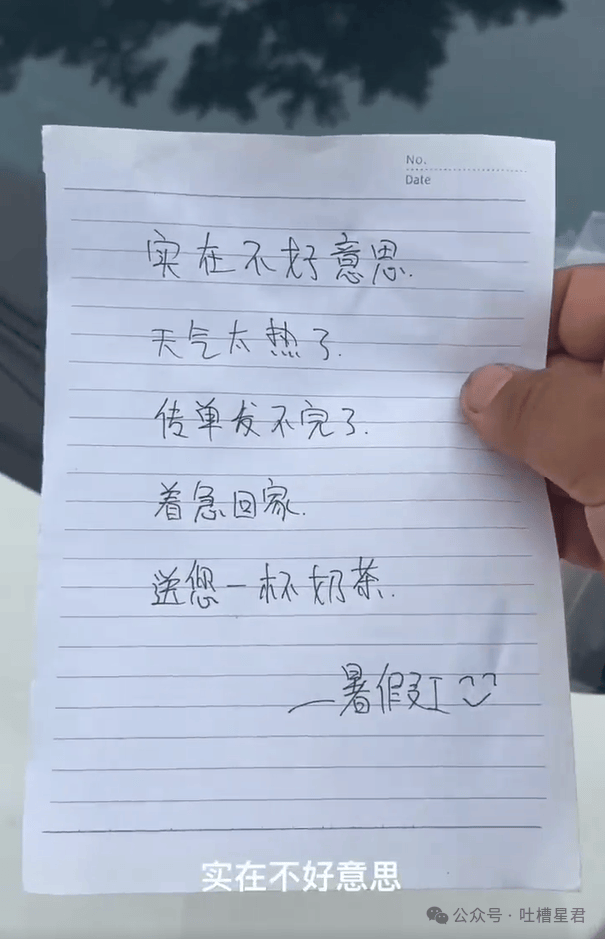 No.
Date
实在不好意思.
天气太热了.
传单发不完了.
着急回家.
送您一杯奶茶.
—暑假工
实在不好意思
公众号·吐槽星君